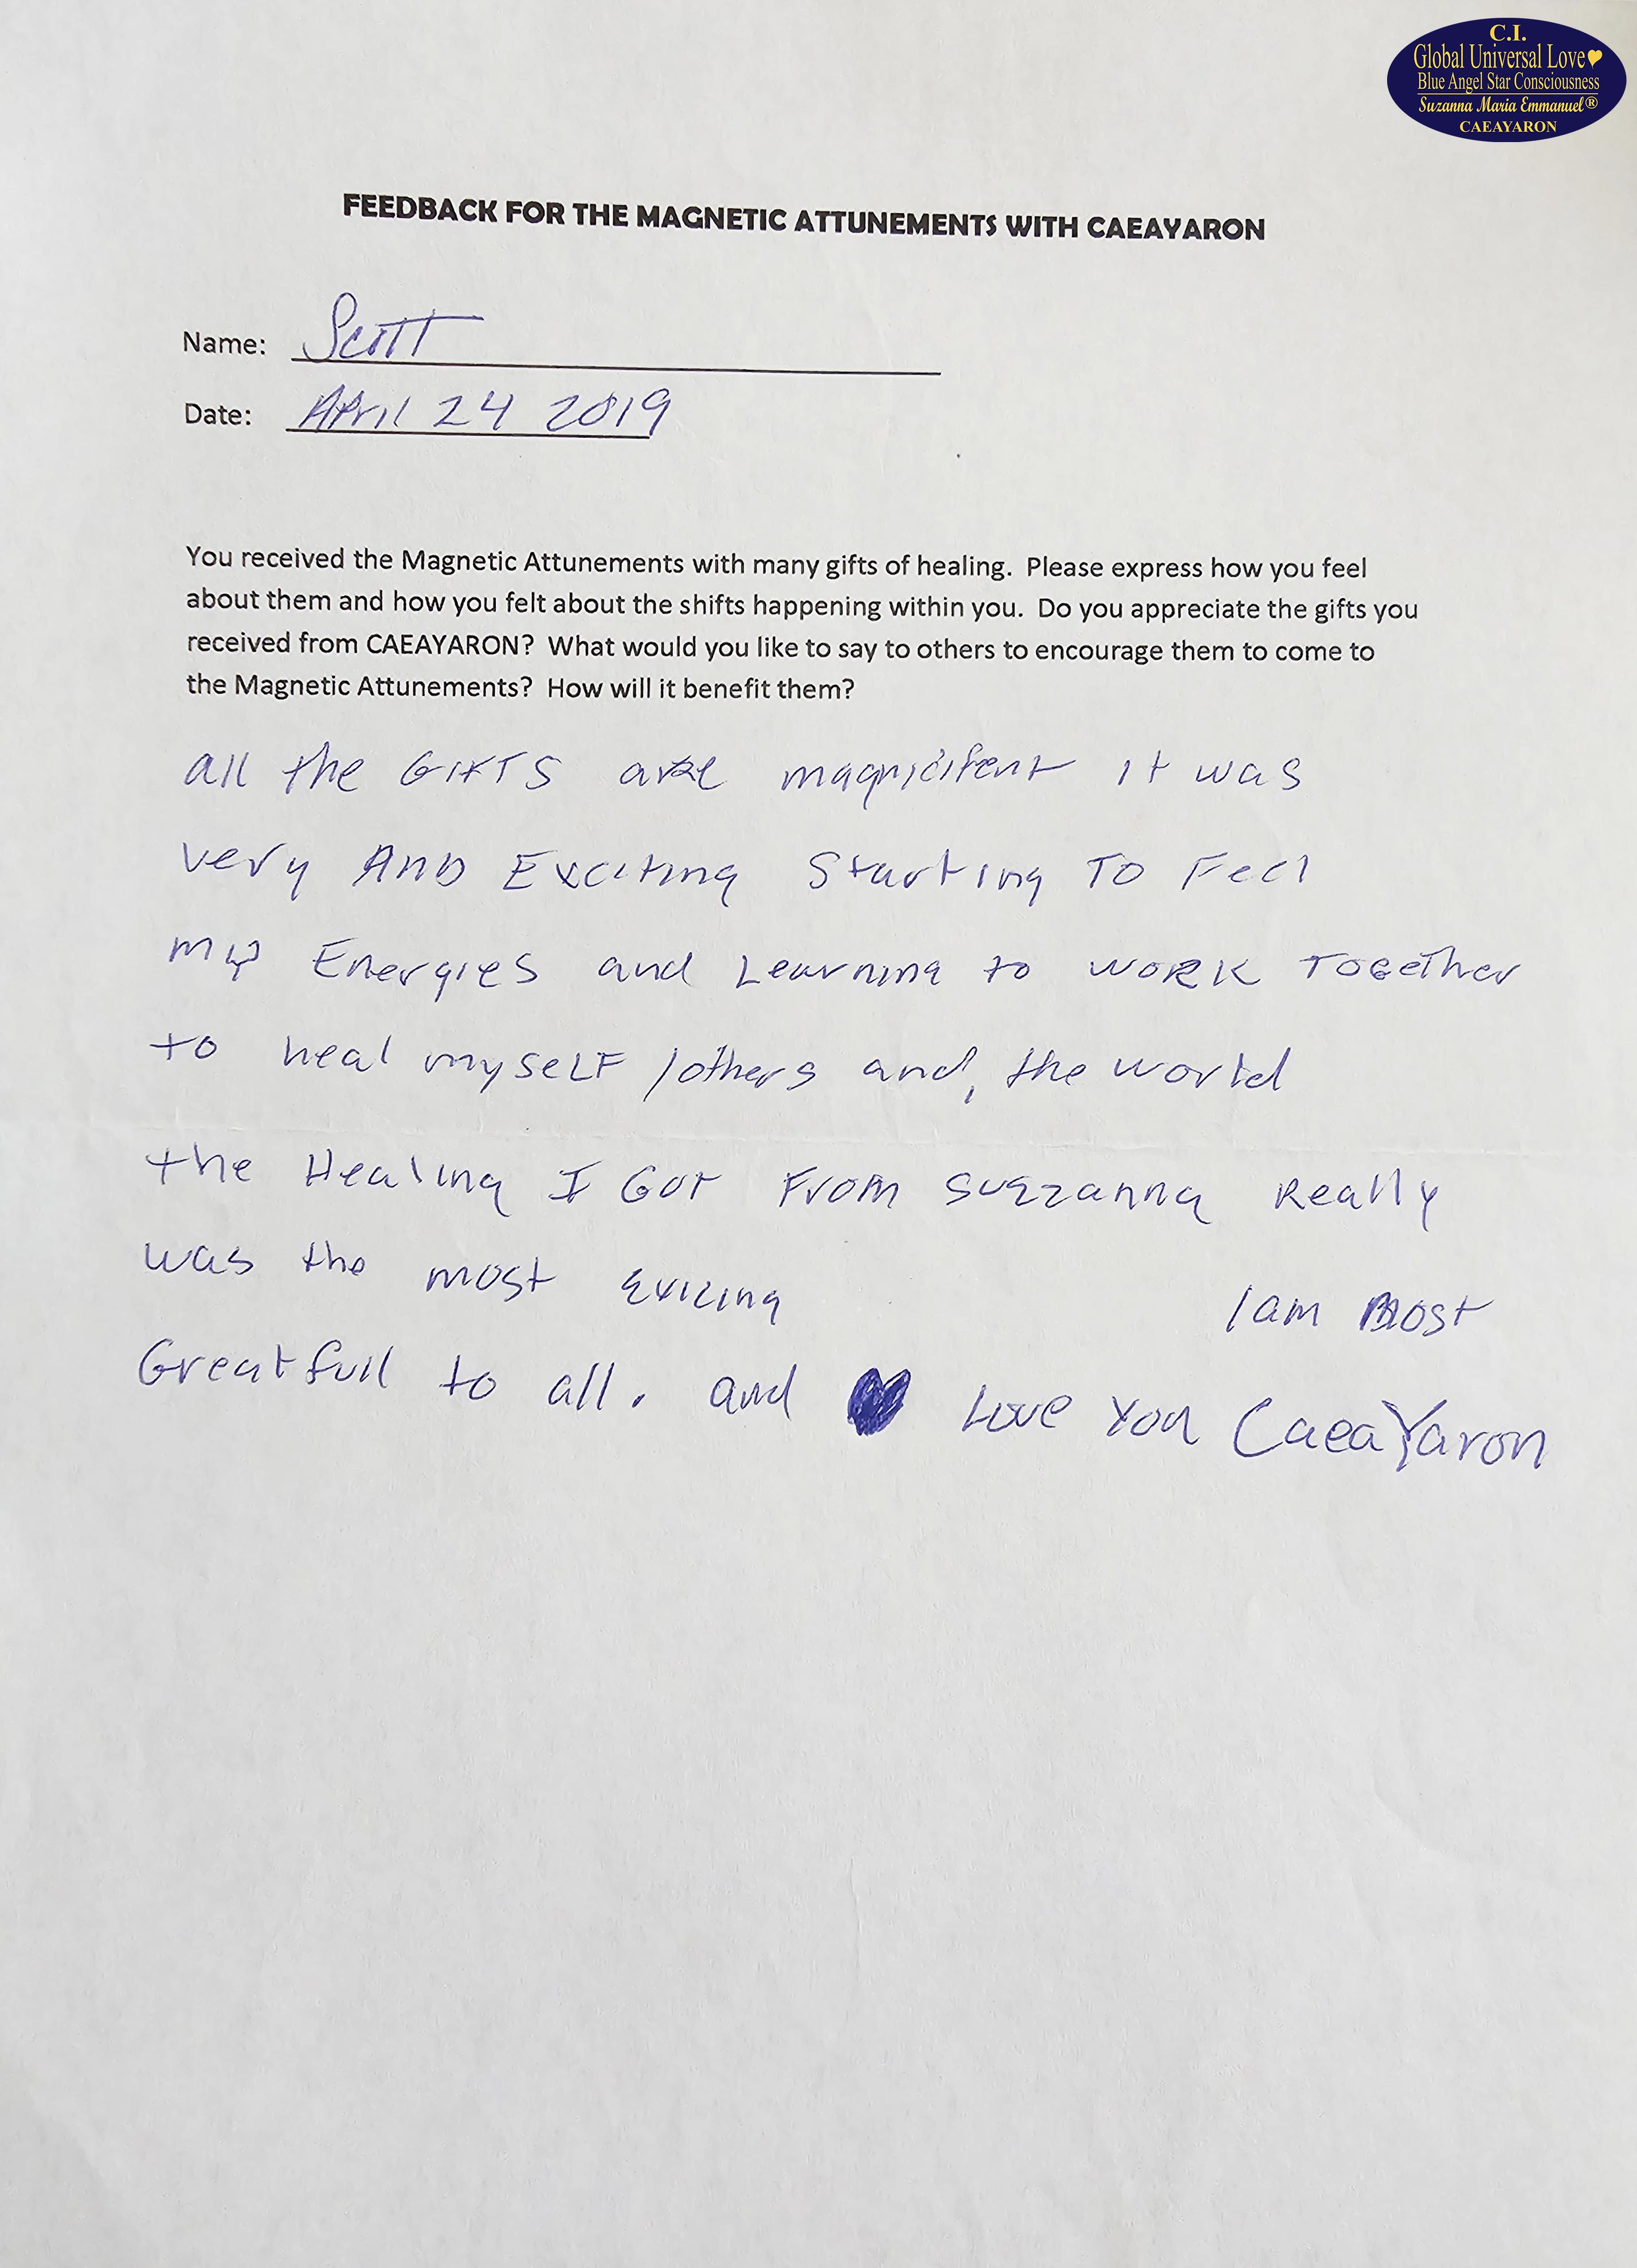 C.I.
Global Universal Love
Blue Angel Star Consciousness
Suzanna Maria Emmanuel®
CAEAYARON
FEEDBACK FOR THE MAGNETIC ATTUNEMENTS WITH CAEAYARON
Name: Scott
Date: April 24 2019
You received the Magnetic Attunements with many gifts of healing. Please express how you feel
about them and how you felt about the shifts happening within you. Do you appreciate the gifts you
received from CAEAYARON? What would you like to say to others to encourage them to come to
the Magnetic Attunements? How will it benefit them?
all the GIFTS are magnicifent it was
very AND Exciting Starting TO Feel
my Energies and Learning to WORK TOGETher
to heal mySELF /others and, the world
the Healing I GOT From Really
was the most
I am most
Greatfull to all. and Love You CaeaYaron